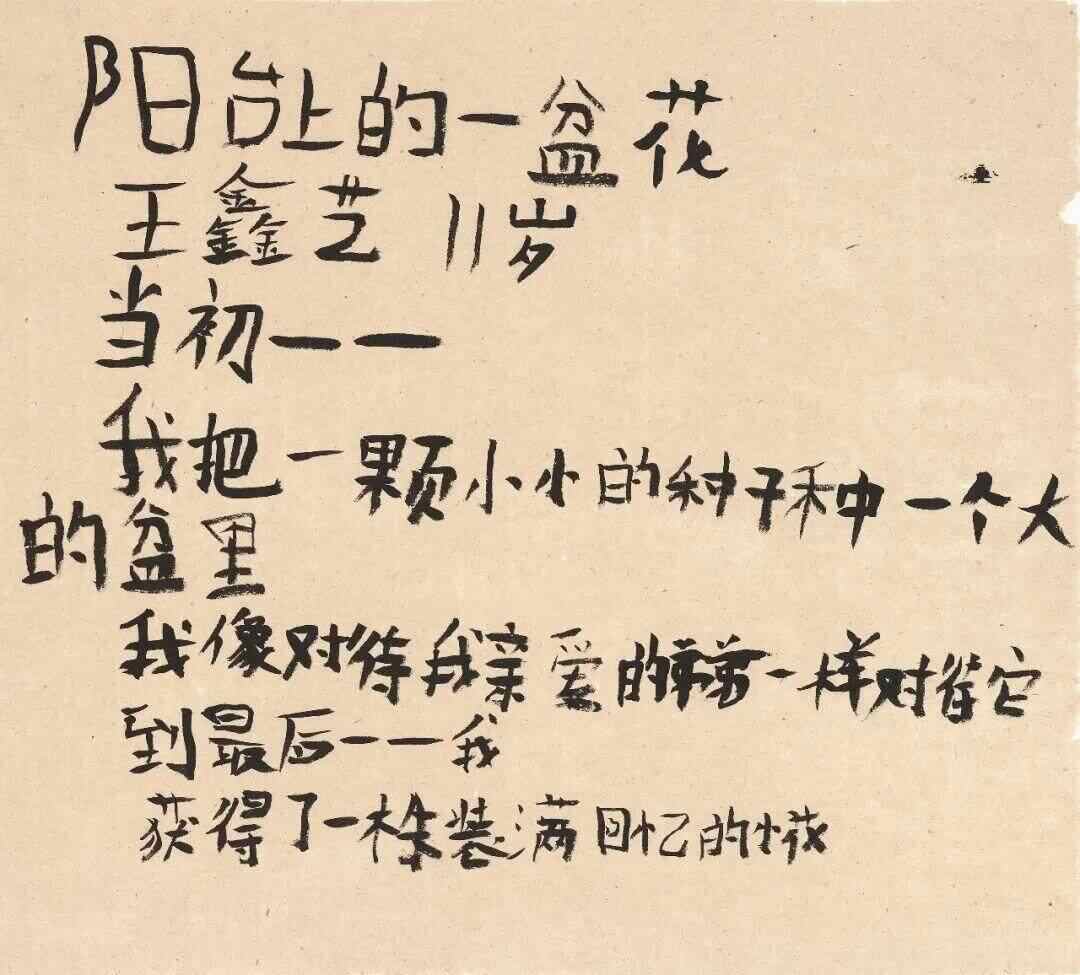 阳台上的一盆花
王鑫艺 11岁
当初——
我把一颗小小的种子种中一个大
的盆里
我像对待我亲爱的弟弟一样对待它
到最后——我
获得了一株装满回忆的小花